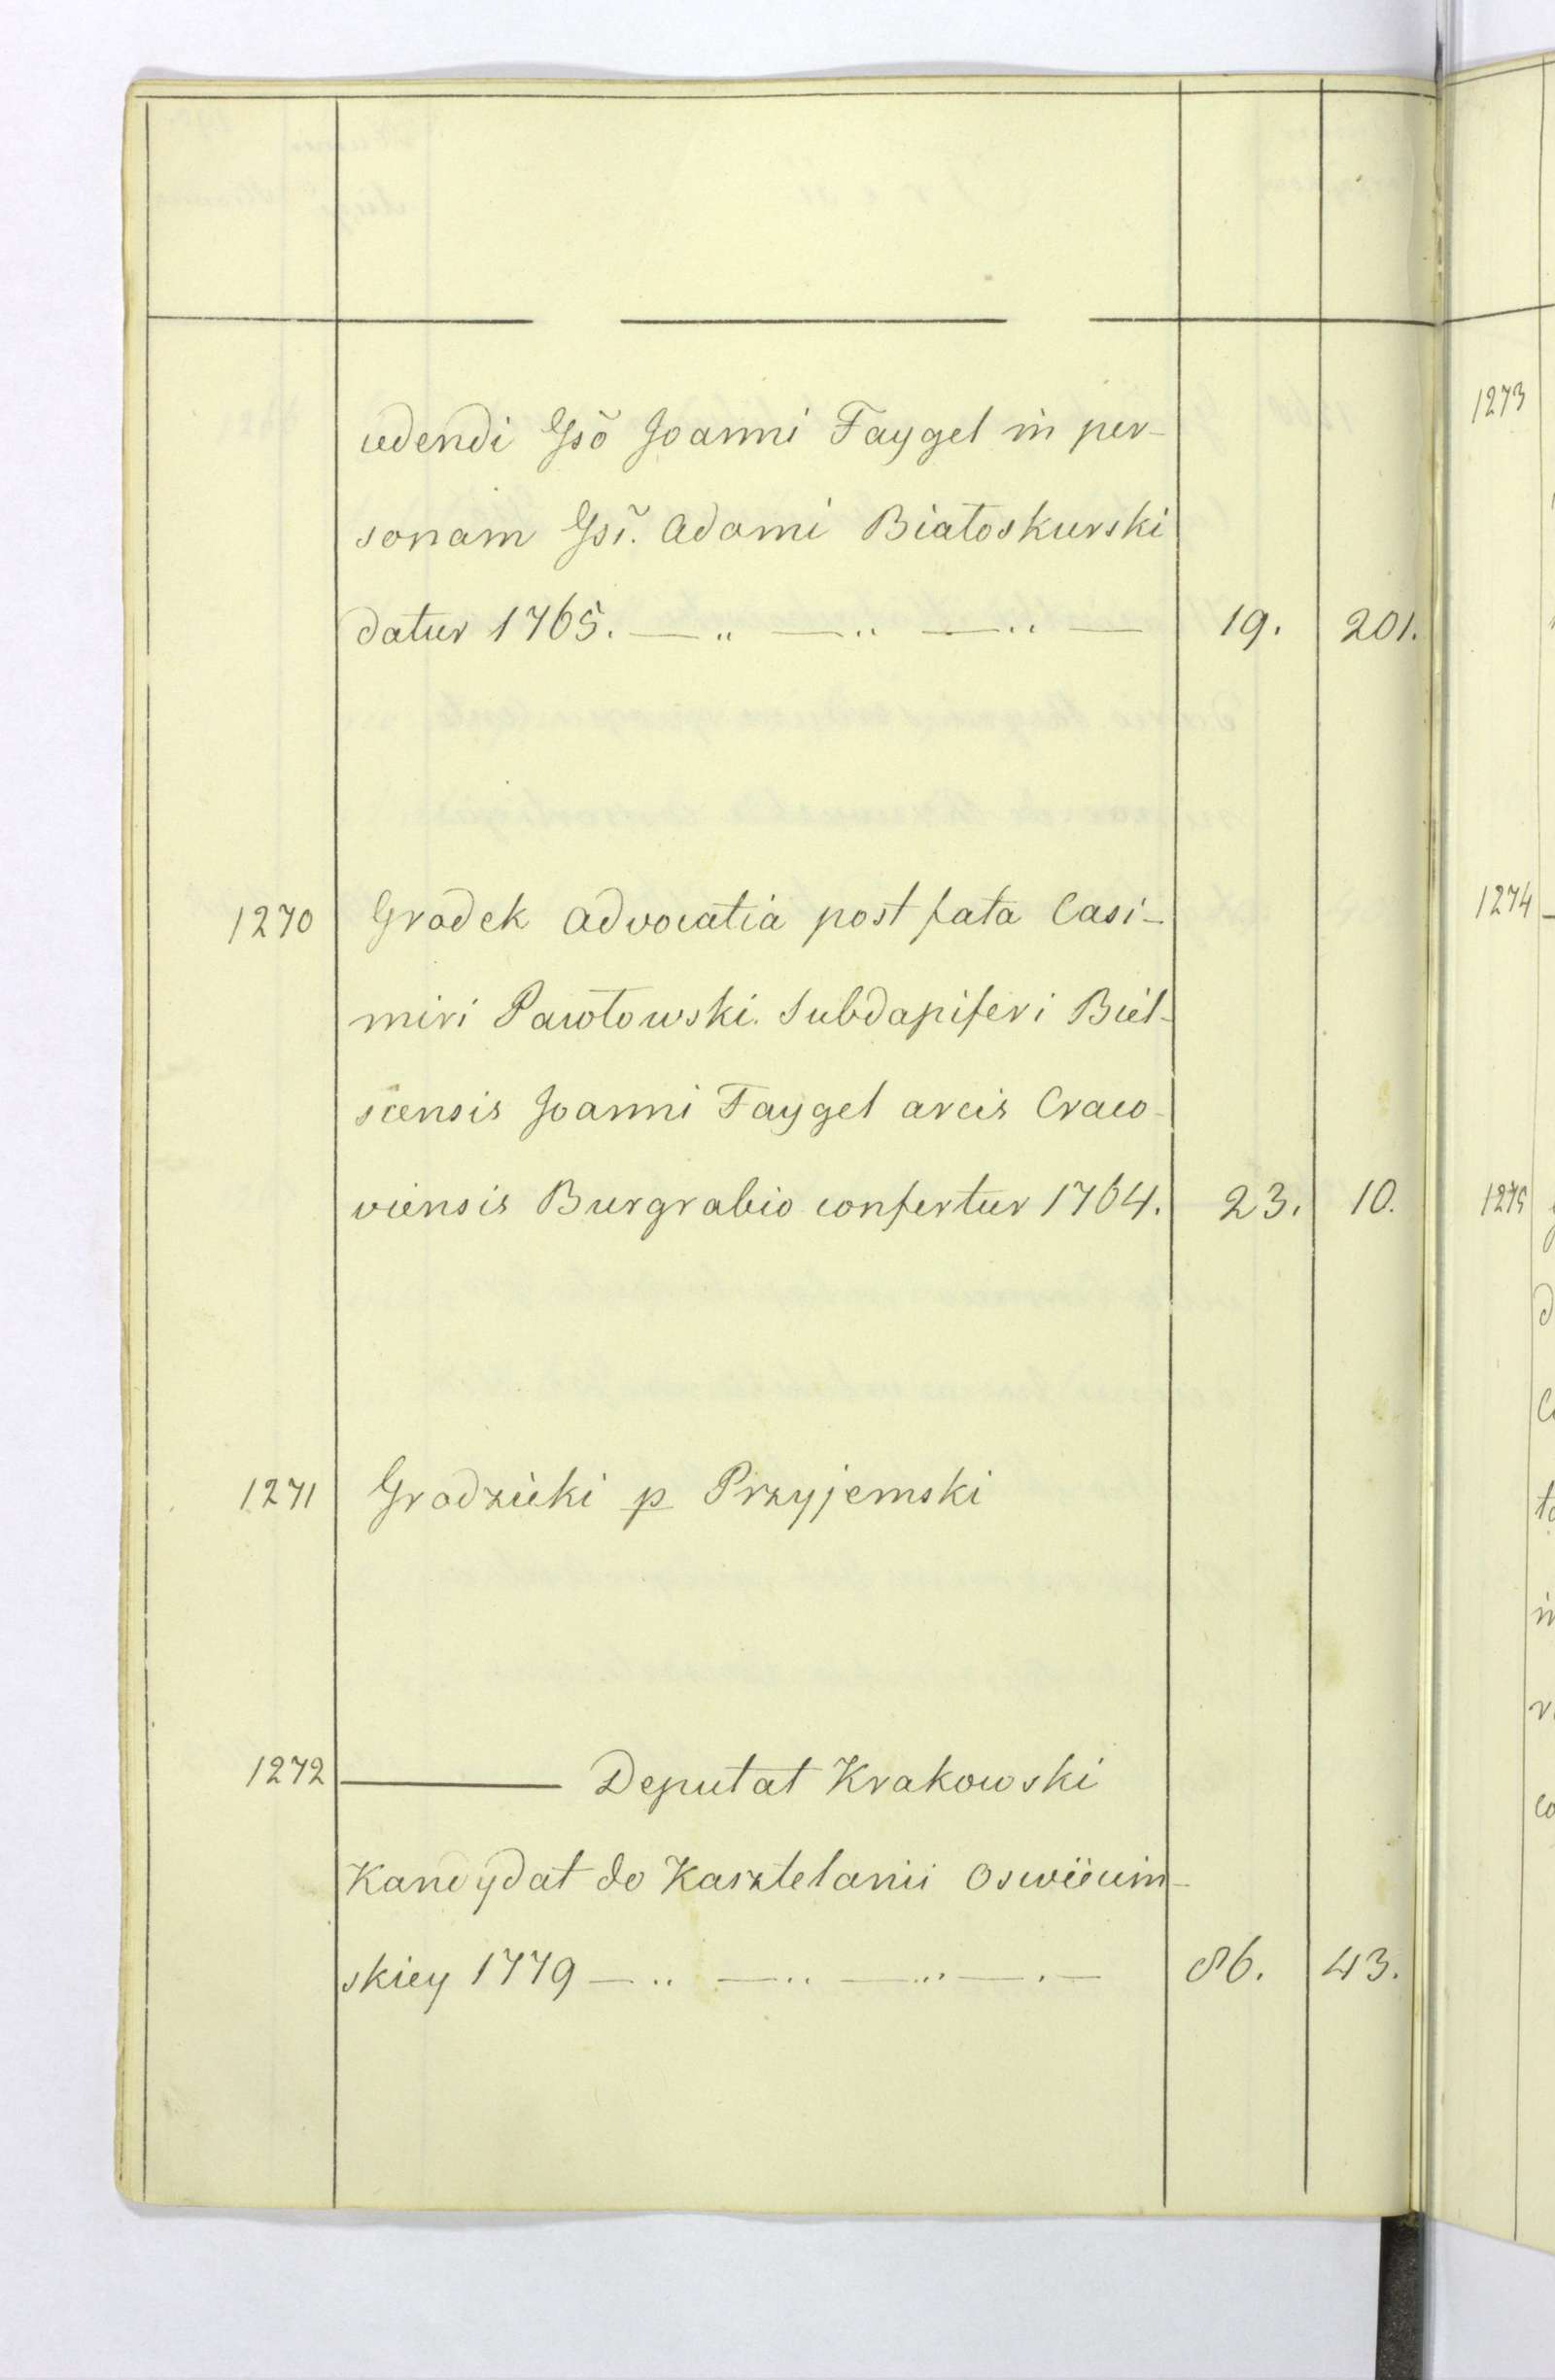 cedendi Gsõ Joanni Faygel in per-
sonam Gsĩ. Adami Białoskurski
datur 1765. — „ — „ — „ — 19. 201.
1270 Grodek advocatia post fata Casi-
miri Pawłowski. Subdapiferi Biel-
scensis Joanni Faygel arcis Craco-
viensis Burgrabio confertur 1764. 23. 10.
1271 Grodzicki p Przyjemski
1272 ——— Deputat Krakowski
Kandydat do Kasztelanii Oswiecim-
skiey 1779 — .. — .. — ... — . — 86. 43.
1273
1274
1275